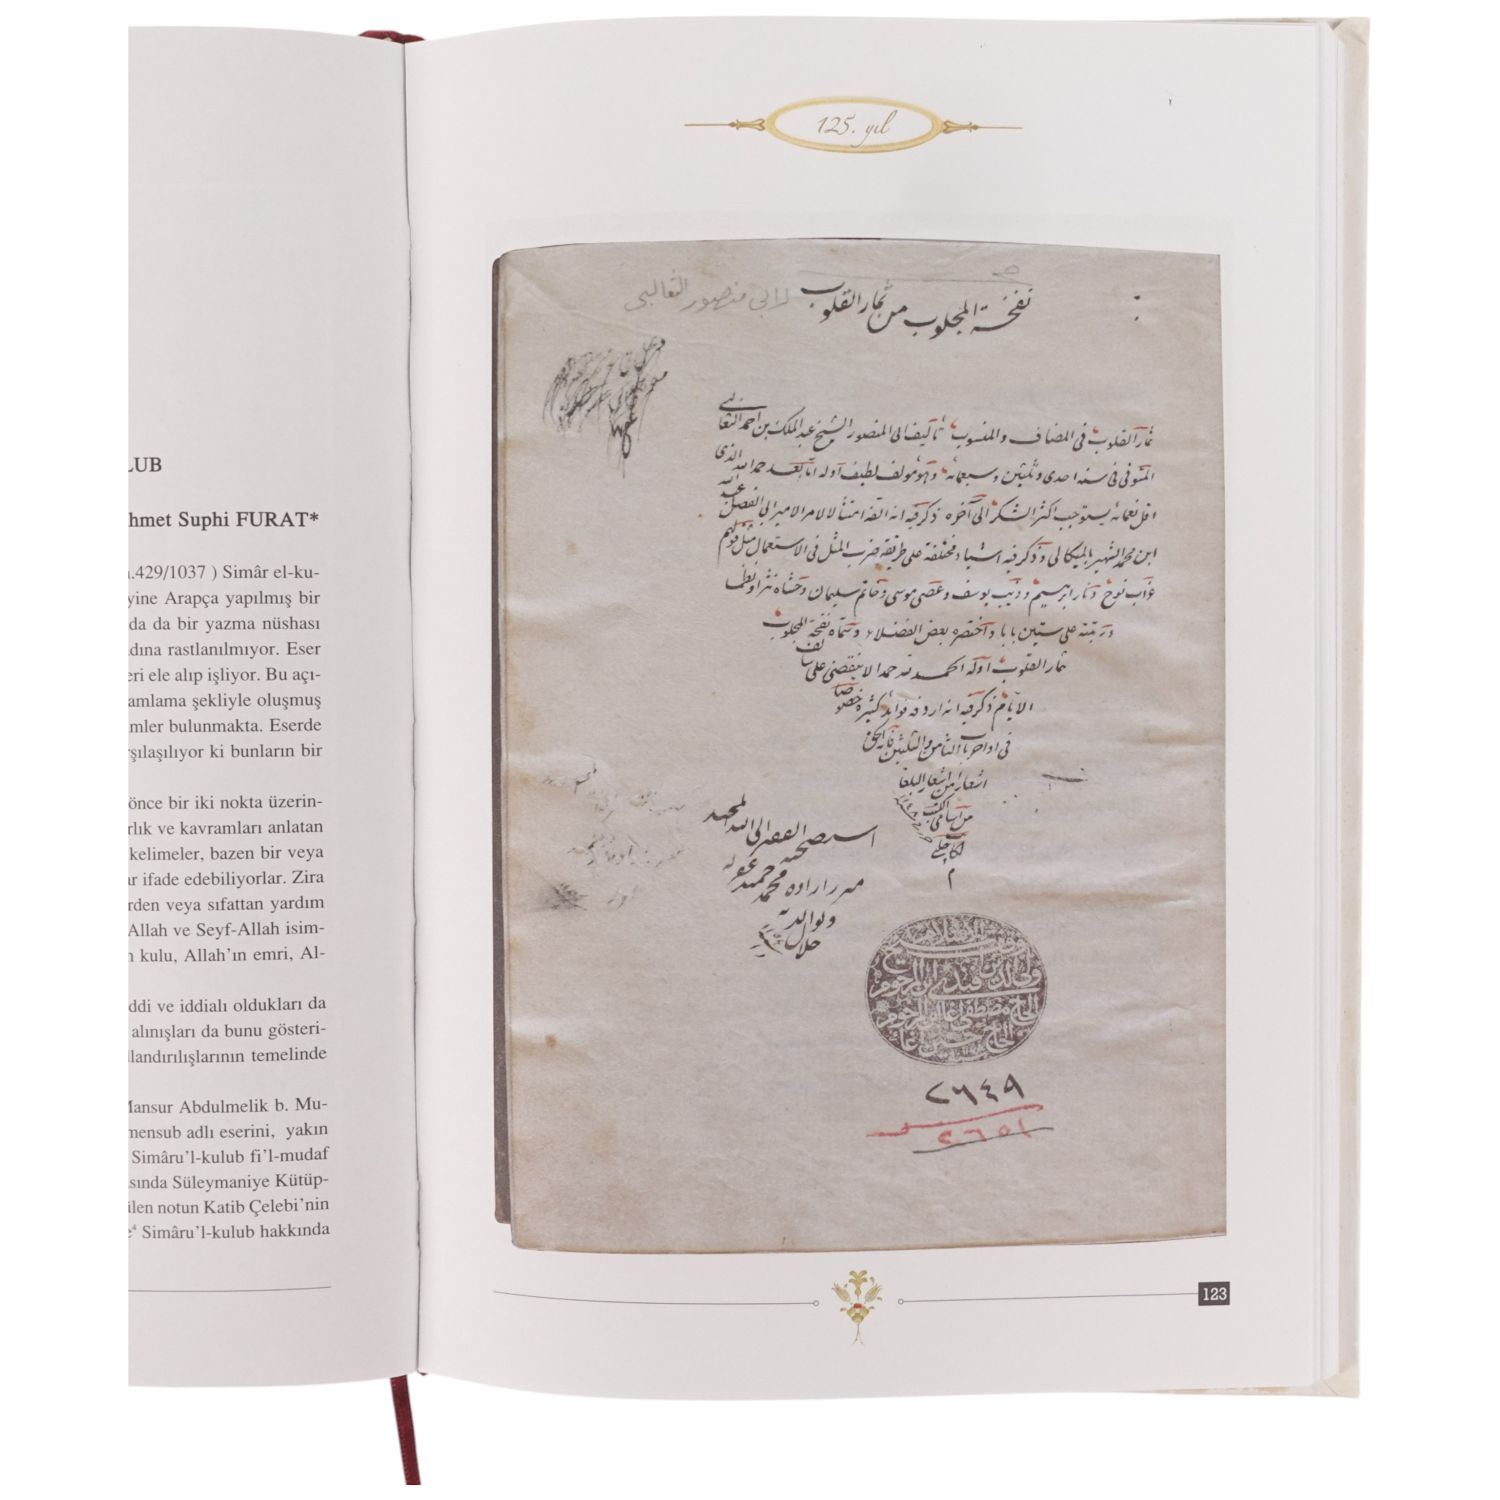 LUB
hmet Suphi FURAT*
.429/1037 ) Simâr el-ku-
yine Arapça yapılmış bir
da da bir yazma nüshası
adına rastlanılmıyor. Eser
eri ele alıp işliyor. Bu açı-
amlama şekliyle oluşmuş
mler bulunmakta. Eserde
rşılaşılıyor ki bunların bir
önce bir iki nokta üzerin-
rlık ve kavramları anlatan
kelimeler, bazen bir veya
ar ifade edebiliyorlar. Zira
rden veya sıfattan yardım
Allah ve Seyf-Allah isim-
n kulu, Allah'ın emri, Al-
ddi ve iddialı oldukları da
alınışları da bunu gösteri-
llandırılışlarının temelinde
Mansur Abdulmelik b. Mu-
mensub adlı eserini, yakın
Simâru'l-kulub fi'l-mudaf
sında Süleymaniye Kütüp-
ilen notun Katib Çelebi'nin
e⁴ Simâru'l-kulub hakkında
125. yıl
نفحة المجلوب من ثمار القلوب لابي منصور الثعالبي
ثمار القلوب في المضاف والمنسوب تأليف ابي المنصور الشيخ عبد الملك بن احمد الثعالبي
المتوفى في سنة احدى وثلثين وسبعمائة وهو مؤلف لطيف اوله اما بعد حمد الله الذي
اقل نعمائه يستوجب اكثر الشكر الى آخره ذكر فيه انه الفه امتثالا لامر الامير ابي الفضل عبد الله
ابن محمد الشهير بالميكالي وذكر فيه اشياء مختلفة على طريقة ضرب المثل في الاستعمال مثل قولهم
غراب نوح ونار ابرهيم وذيب يوسف وعصى موسى وخاتم سليمان وحشاه نثرا ونظما
ورتبته على ستين بابا واختصره بعض الفضلاء وسماه نفحة المجلوب
ثمار القلوب اوله الحمد لله حمدا لا ينقضي على
الايام ذكر فيه انه اردفه فوايد كثيرة خصوصا
في اواخر باب الثامن والثلثين فانه الحق
اشعارا من اشعار البلغا
من اسامي الكتب
لكاتب چلبي
م
استصحبه الفقير الى الله المجيد
ميرزا زاده محمد حميد عفى له
ولوالديه
حلال
٢٦٤٩
٢٦٥١
123